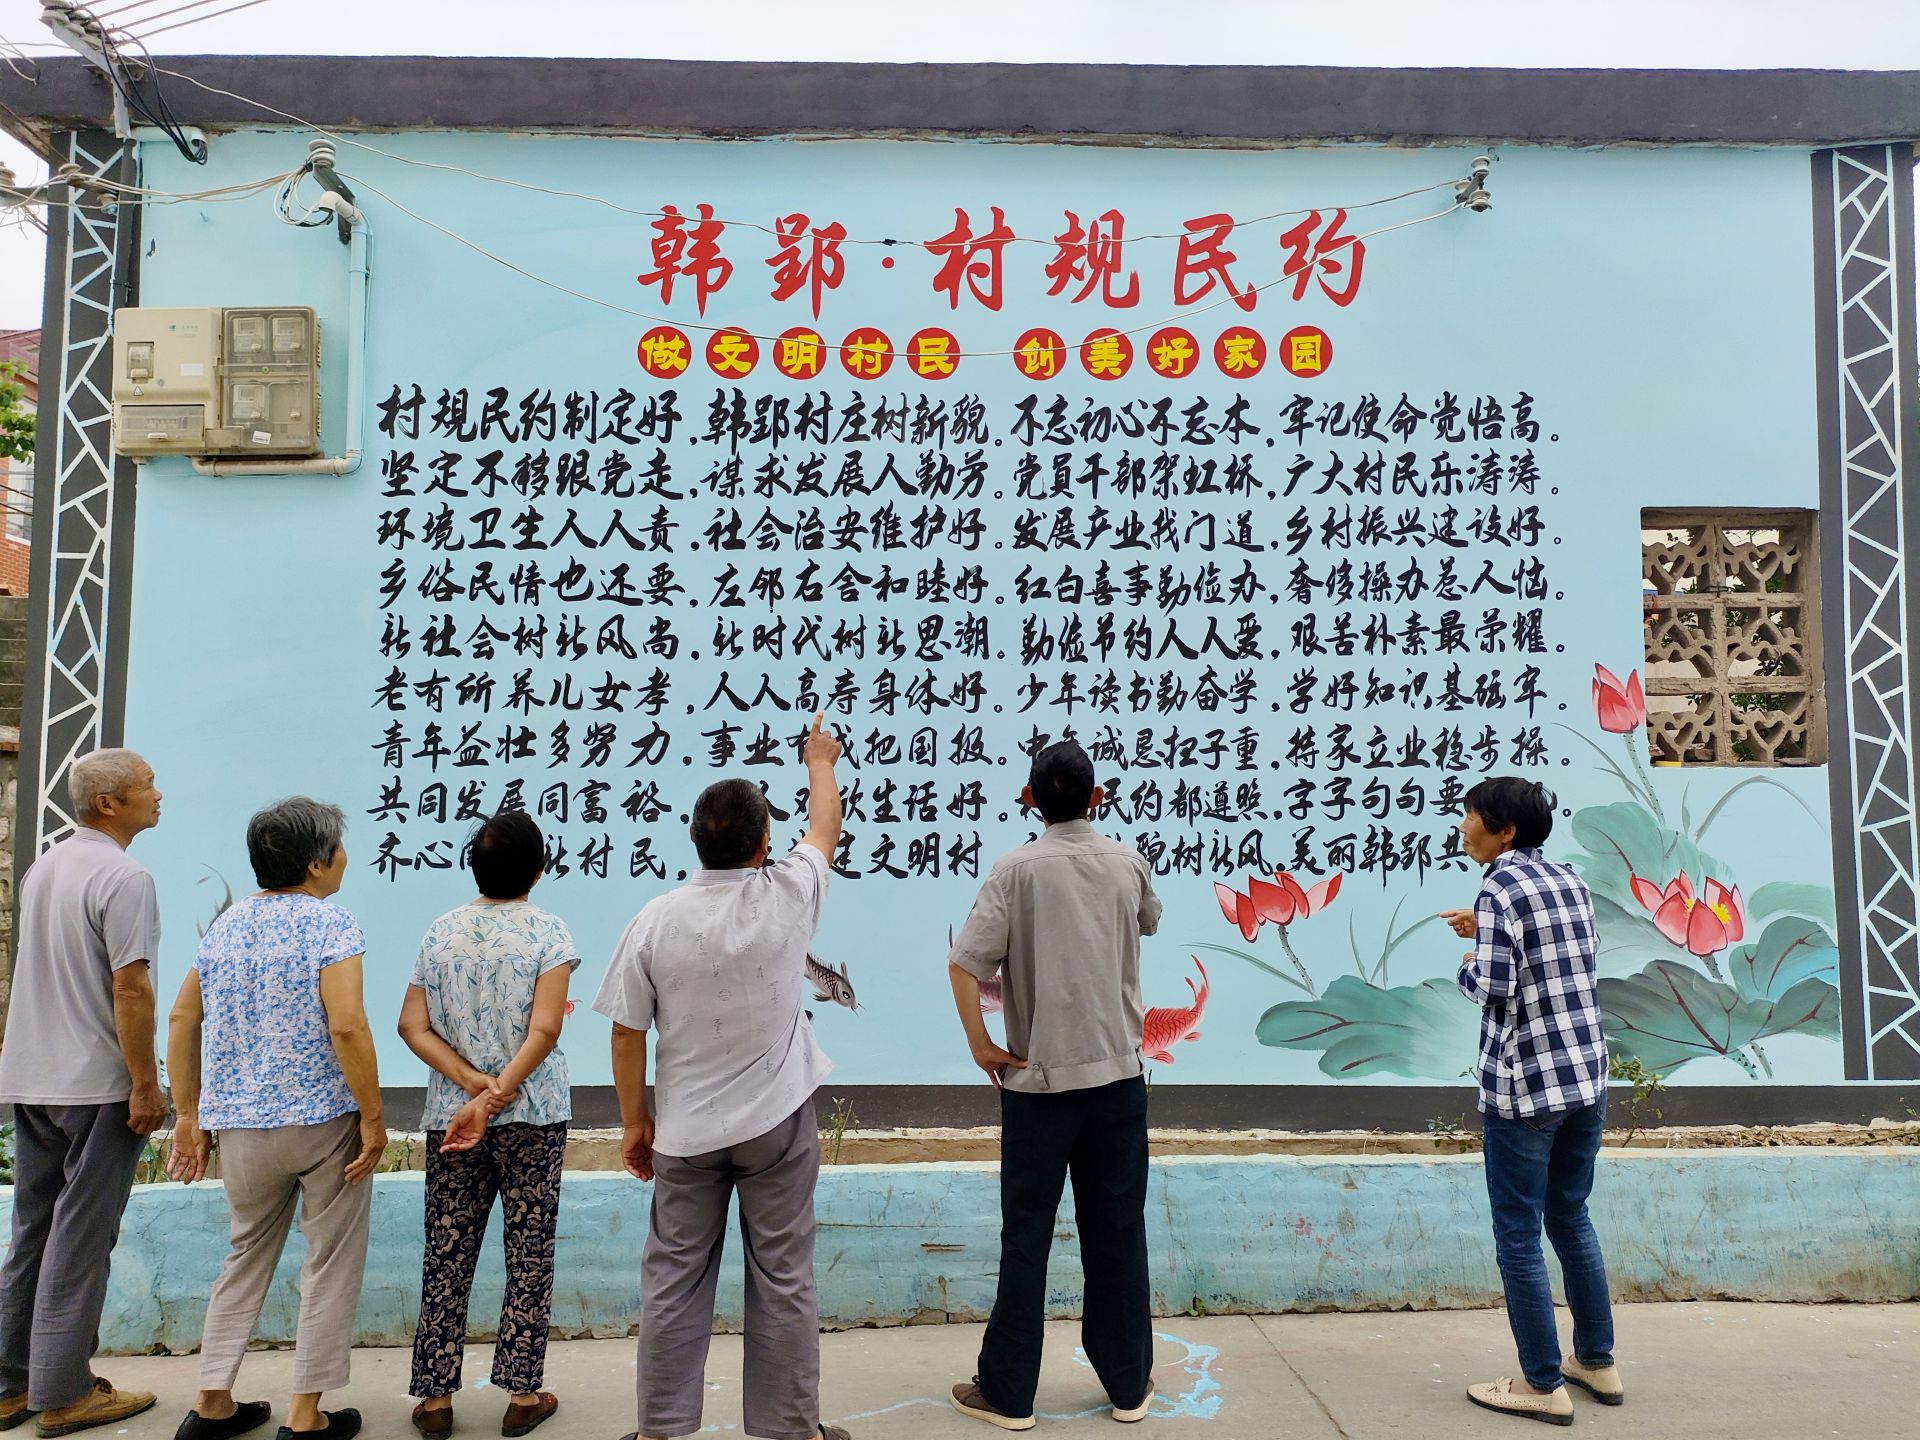 韩郢·村规民约
做文明村民 创美好家园
村规民约制定好,韩郢村庄树新貌。不忘初心不忘本,牢记使命觉悟高。
坚定不移跟党走,谋求发展人勤劳。党员干部架虹桥,广大村民乐涛涛。
环境卫生人人责,社会治安维护好。发展产业找门道,乡村振兴建设好。
乡俗民情也还要,左邻右舍和睦好。红白喜事勤俭办,奢侈操办惹人恼。
新社会树新风尚,新时代树新思潮。勤俭节约人人爱,艰苦朴素最荣耀。
老有所养儿女孝,人人高寿身体好。少年读书勤奋学,学好知识基础牢。
青年益壮多努力,事业有成把国报。中年诚恳担子重,持家立业稳步操。
共同发展同富裕,人欢欣生活好。民约都遵照,字字句句要
齐心 新村民,建文明村 貌树新风。美丽韩郢共